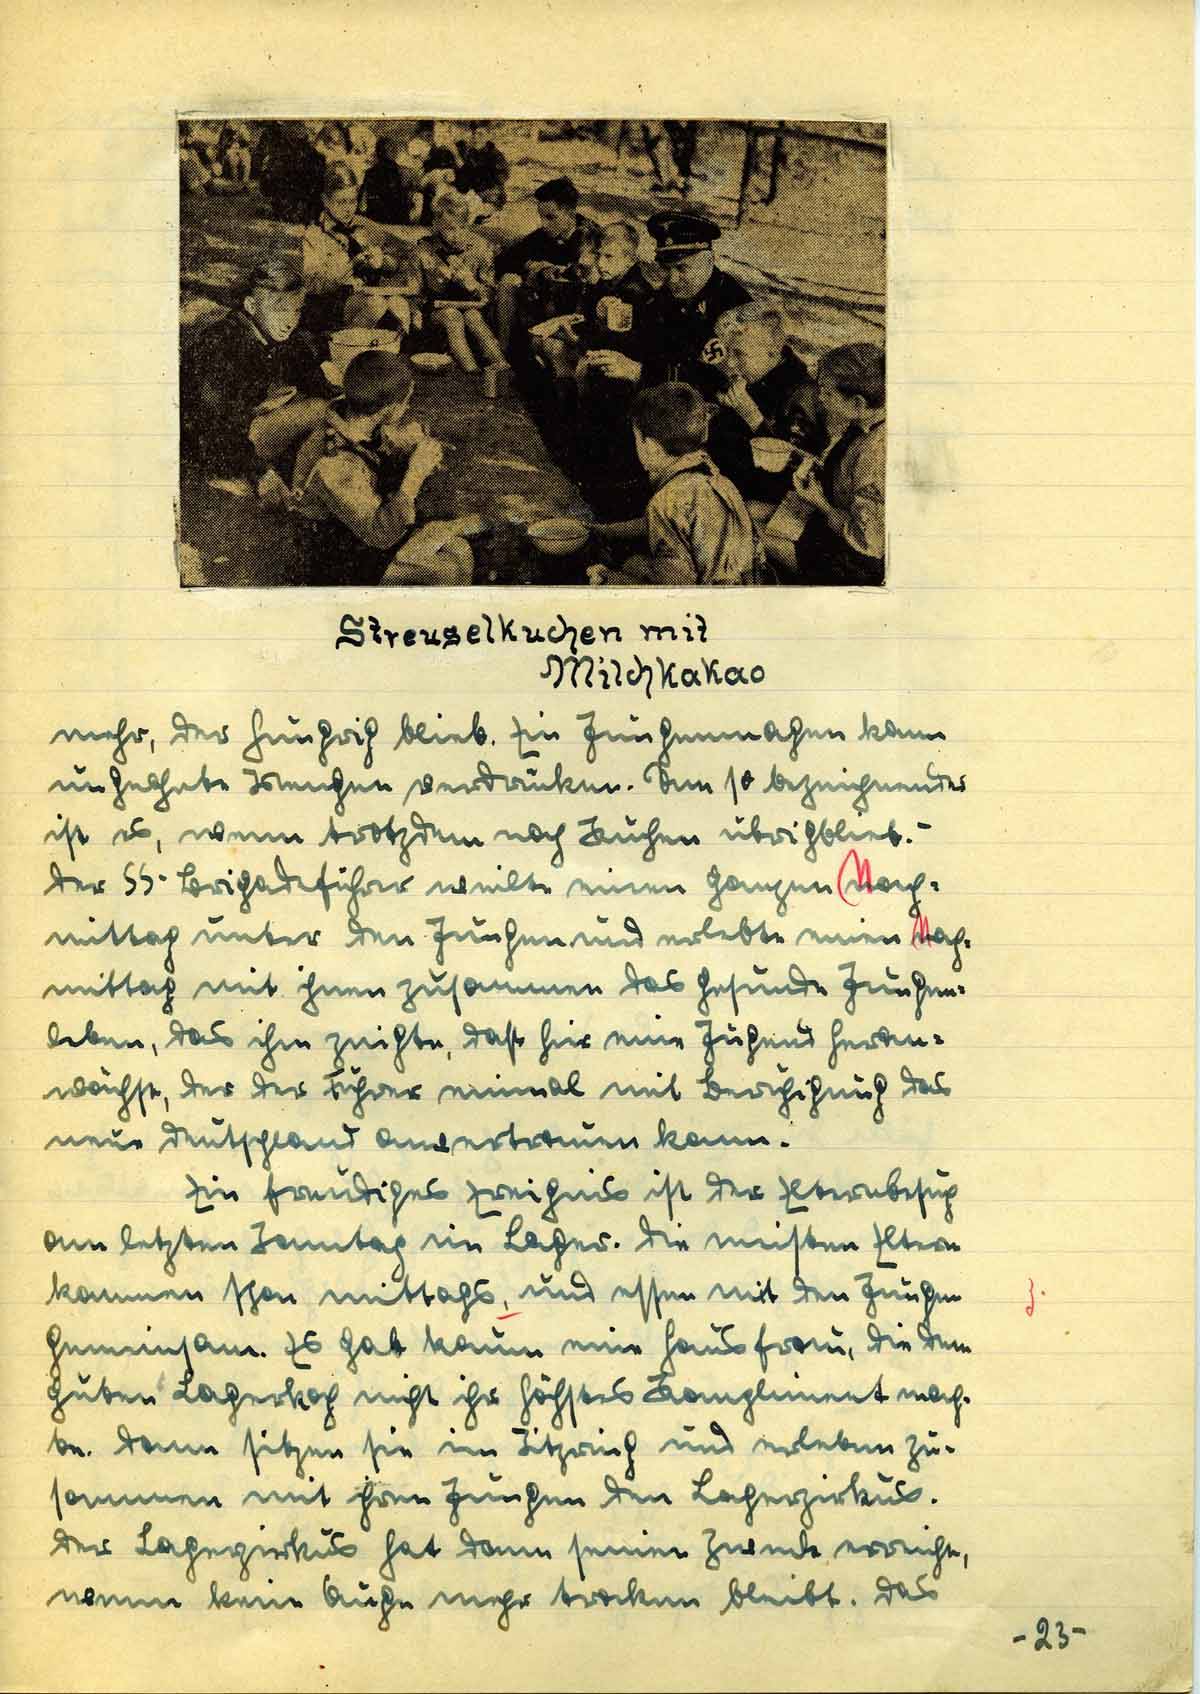 Streuselkuchen mit
Milchkakao
mehr, der hungrig blieb. Ein Jungenmagen kann
ungeahnte Mengen verdrücken. Um so bezeichnender
ist es, wenn trotzdem noch Kuchen übrigblieb.-
Der SS-Brigadeführer weilte einen ganzen Nach-
mittag unter den Jungen und erlebte einen Nach-
mittag mit ihnen zusammen das gesunde Jungen-
leben, das ihm zeigte, daß hier eine Jugend heran-
wächst, der der Führer einmal mit Berechtigung das
neue Deutschland anvertrauen kann.
Ein freudiges Ereignis ist der Elternbesuch
am letzten Sonntag im Lager. Die meisten Eltern
kommen schon mittags, und essen mit den Jungen
gemeinsam. Es gab kaum eine Hausfrau, die dem
guten Lagerkoch nicht ihr höchstes Kompliment mach-
te. Dann sitzen sie im Sitzring und erleben zu-
sammen mit ihren Jungen den Lagerzirkus.
Der Lagerzirkus hat dann seinen Zweck erreicht,
wenn kein Auge mehr trocken bleibt. Das
-23-